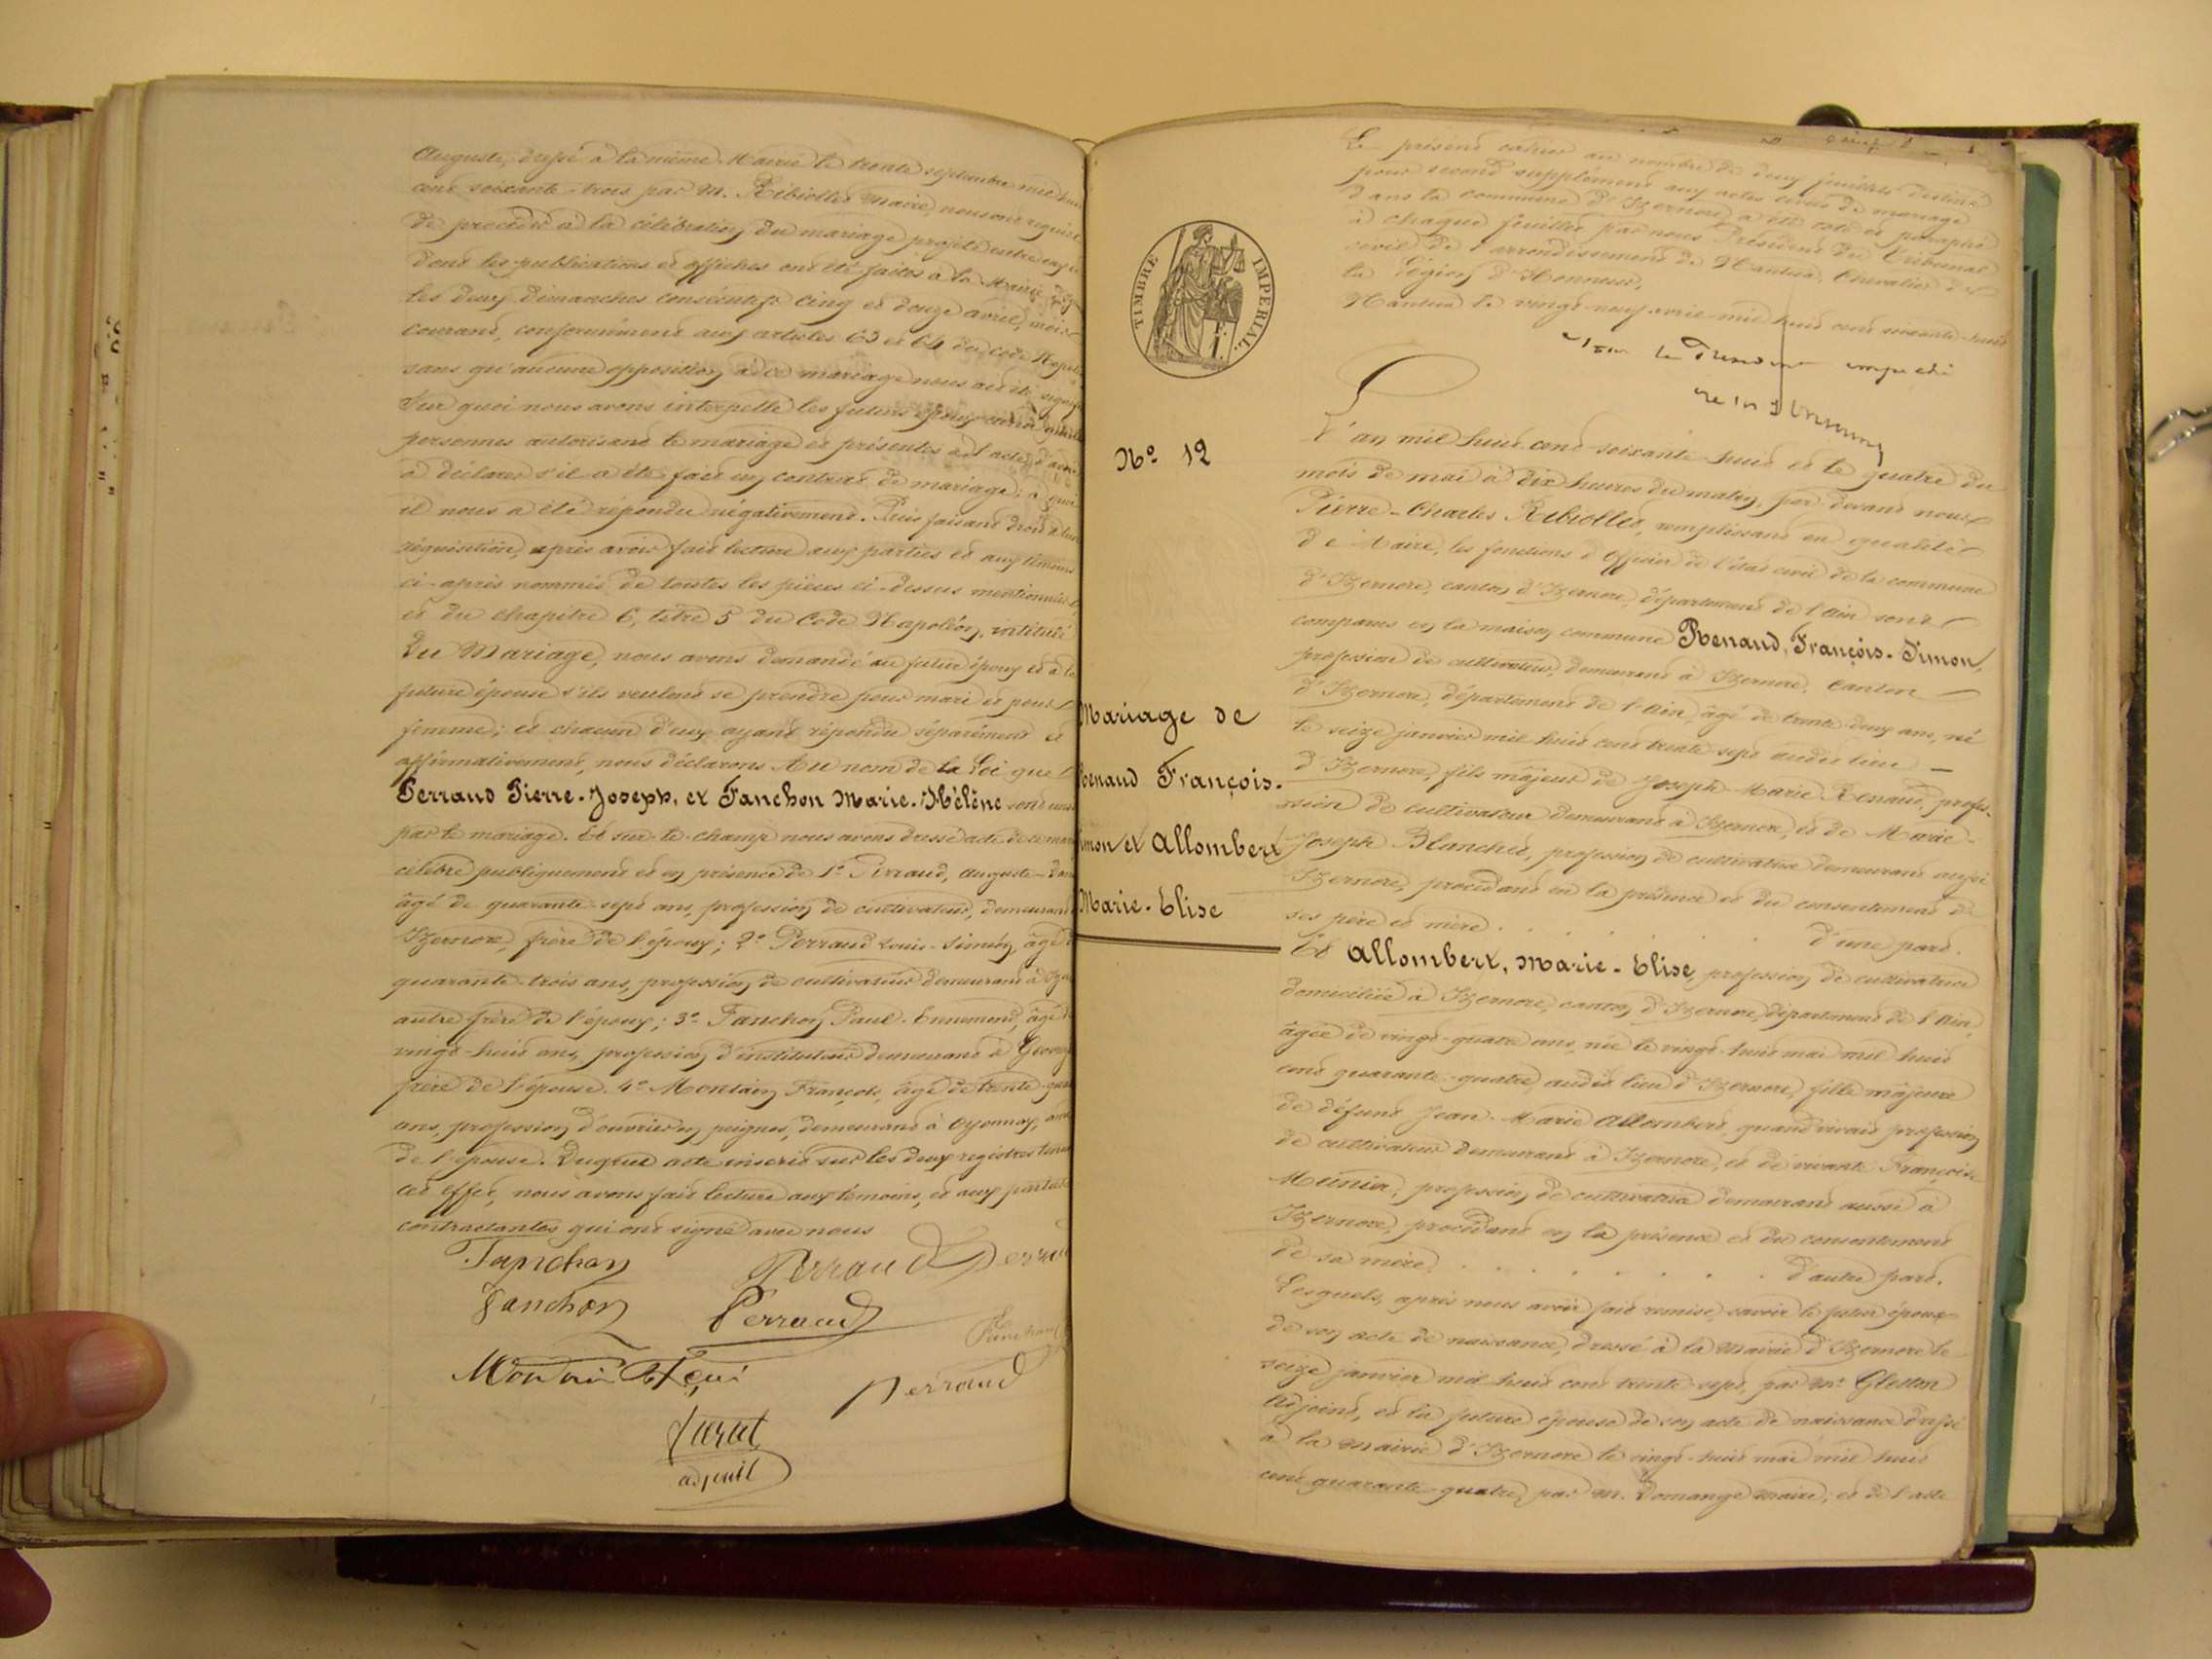 Auguste, dressé à la même Mairie le trente septembre mil huit
cent soixante-trois par M. Ribiollet Maire, nous ont requis
de procéder à la célébration du mariage projeté entre eux et
dont les publications et affiches ont été faites à la Mairie
les deux dimanches consécutifs cinq et douze avril, mois
courant, conformément aux articles 63 et 64 du code Napoléon
sans qu'aucune opposition à ce mariage nous ait été signifiée
Sur quoi nous avons interpellé les futurs époux
personnes autorisant le mariage et présentes à l'acte, d'avoir
à déclarer s'il a été fait un contrat de mariage; à quoi
il nous a été répondu négativement. Puis faisant droit à leur
réquisition, après avoir fait lecture aux parties et aux témoins
ci-après nommés de toutes les pièces ci-dessus mentionnées
et du chapitre 6, titre 5 du Code Napoléon, intitulé
Du Mariage, nous avons demandé au futur époux et à la
future épouse s'ils veulent se prendre pour mari et pour
femme; et chacun d'eux ayant répondu séparément et
affirmativement, nous déclarons Au nom de la Loi que
Perraud Pierre-Joseph, et Fanchon Marie-Hélène sont unis
par le mariage. Et sur-le-champ nous avons dressé acte de ce
célébré publiquement et en présence de 1° Perraud, Auguste
âgé de quarante-sept ans, profession de cultivateur, demeurant
Izernore, frère de l'époux; 2° Perraud Louis-Siméon, âgé
quarante-trois ans, profession de cultivateur demeurant à
autre frère de l'époux; 3° Fanchon Paul-Ennemond, âgé
vingt-huit ans, profession d'instituteur demeurant à
frère de l'épouse. 4° Montain François, âgé de trente
ans, profession d'ouvrier en peignes, demeurant à Oyonnax,
de l'épouse. Duquel acte inscrit sur les deux registres tenus
cet effet, nous avons fait lecture aux témoins, et aux parties
contractantes qui ont signé avec nous
Fanchon Perraud Perraud
Fanchon Perraud
Fanchon
Perraud
adjoint
Le présent cahier au nombre de deux feuillets destiné
pour second supplément aux actes civils de mariage
dans la commune d'Izernore a été coté et paraphé
à chaque feuillet par nous Président du Tribunal
civil de l'arrondissement de Nantua, Chevalier de
la Légion d'Honneur.
Nantua le vingt-neuf avril mil huit cent soixante-huit
le Président empêché
TIMBRE IMPERIAL
N° 12
Mariage de
Renaud François-
Simon et Allombert
Marie-Elise
L'an mil huit cent soixante-huit et le quatre du
mois de mai à dix heures du matin, par devant nous
Pierre-Charles Ribiollet, remplissant en qualité
de Maire, les fonctions d'Officier de l'état civil de la commune
d'Izernore, canton d'Izernore, département de l'Ain sont
comparus en la maison commune Renaud, François-Simon,
profession de cultivateur, demeurant à Izernore, Canton
d'Izernore, département de l'Ain, âgé de trente-deux ans, né
le seize janvier mil huit cent trente-sept audit lieu
d'Izernore, fils majeur de Joseph-Marie Renaud, profes-
sion de cultivateur demeurant à Izernore, et de Marie-
Joseph Blanchet, profession de cultivatrice demeurant aussi
Izernore, procédant en la présence et du consentement de
ses père et mère. d'une part.
Et Allombert, Marie-Elise, profession de cultivatrice
domiciliée à Izernore, canton d'Izernore, département de l'Ain,
âgée de vingt-quatre ans, née le vingt-huit mai mil huit
cent quarante-quatre, audit lieu d'Izernore, fille majeure
de défunt Jean-Marie Allombert, quand vivait profession
de cultivateur demeurant à Izernore, et de vivante Françoise
Meunier, profession de cultivatrice demeurant aussi à
Izernore, procédant en la présence et du consentement
de sa mère. d'autre part.
Lesquels, après nous avoir fait remise, savoir le futur époux
de son acte de naissance, dressé à la Mairie d'Izernore le
seize janvier mil huit cent trente-sept, par Mr Gleston
Adjoint, et la future épouse de son acte de naissance dressé
à la Mairie d'Izernore le vingt-huit mai mil huit
cent quarante-quatre, par M. Domange maire, et de l'acte